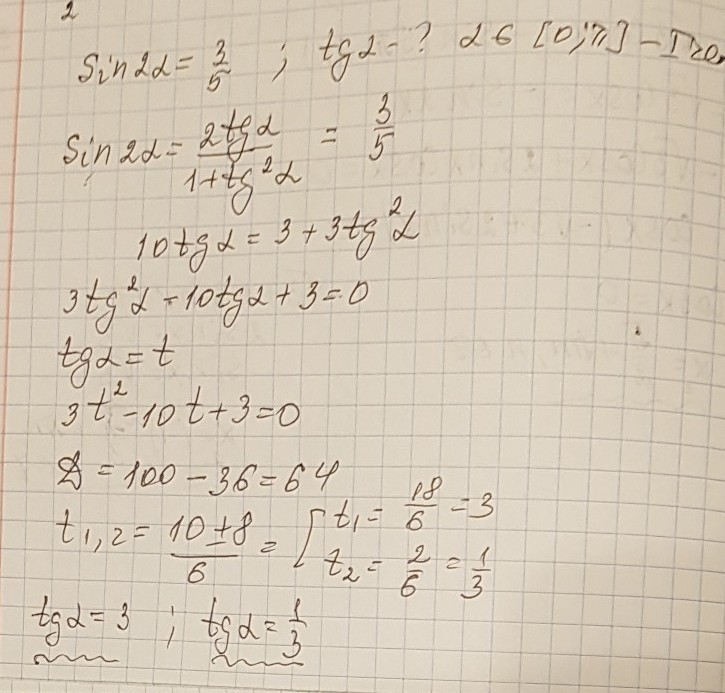 2
Sin2α = 3/5 ; tgα - ? α ∈ [0; π] - I
Sin2α = 2tgα / (1 + tg²α) = 3/5
10tgα = 3 + 3tg²α
3tg²α - 10tgα + 3 = 0
tgα = t
3t² - 10t + 3 = 0
D = 100 - 36 = 64
t1,2 = (10 ± 8)/6 = [ t1 = 18/6 = 3
t2 = 2/6 = 1/3
tgα = 3 ; tgα = 1/3